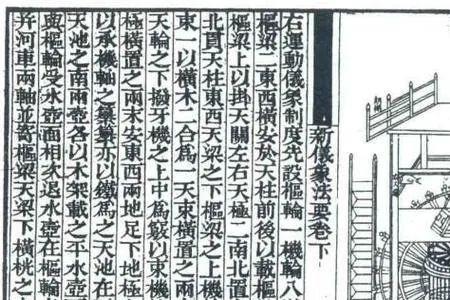 新儀象法要卷下
右運動儀象制度先設樞輪一機輪八
樞梁二東西橫安於天柱前後以載樞
樞梁上以掛天關左右天極二南北置
北貫天柱東西天梁之下樞梁之上機
束一以橫木二合爲一天束橫置之兩
天輪之下撥牙機之上中爲竅以束機
極橫置之兩末安東西兩地足下地極
以承機軸之纂纂亦以鐵爲之天池在
天池之南兩壺各以木架載之平水壺
與樞輪受水壺面相次退水壺在樞輪
并河車兩軸並寄樞梁天梁下橫桄之